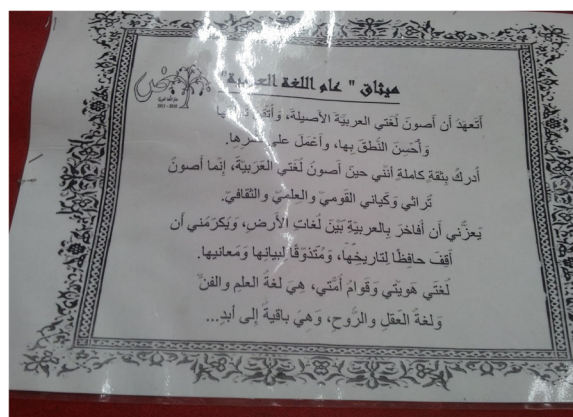 ميثاق " عام اللغة العربية"
أتعهد أن أصونَ لُغتي العربيّة الأصيلة، وَأتقن
وَأحْسِنَ النّطقَ بها، وَأعْمَلَ على
أدركُ بثقةٍ كاملةٍ أنني حينَ أصونُ لُغتي العَرَبيّة، إنما أصونُ
تُراثي وَكياني القوميّ والعلميّ والثقافيّ.
يَعزّني أن أفاخرَ بالعربيّةِ بَيْنَ لغاتِ الأرضِ، وَيُكرمُني أن
أقِفَ حافِظًا لتاريخِها، وَمُتذوّقًا لبيانِها وَمَعانيها.
لُغتي هَويّتي وَقوامُ أمّتي، هِيَ لغةُ العلمِ والفنّ
وَلغةُ العَقلِ والرّوحِ، وَهيَ باقيةٌ إلى أبدِ...